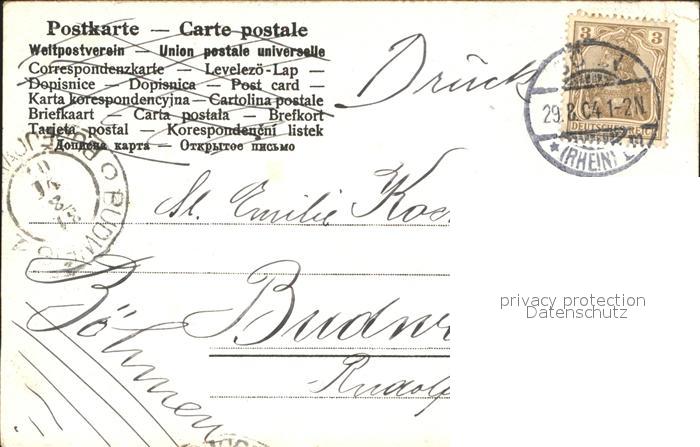 Postkarte — Carte postale
Weltpostverein — Union postale universelle
Correspondenzkarte — Levelező-Lap —
Dopisnice — Dopisnica — Post card —
Karta korespondencyjna — Cartolina postale
Briefkaart — Carta poștala — Brefkort
Tarjeta postal — Korespondenční listek
Дописна карта — Открытое письмо
Drück
3 3
29.8.04 1-2N
DEUTSCHES REICH
* (RHEIN) 1
BUDW
Emilie Koc
Budw
Böhmen
Rudolf
privacy protection
Datenschutz